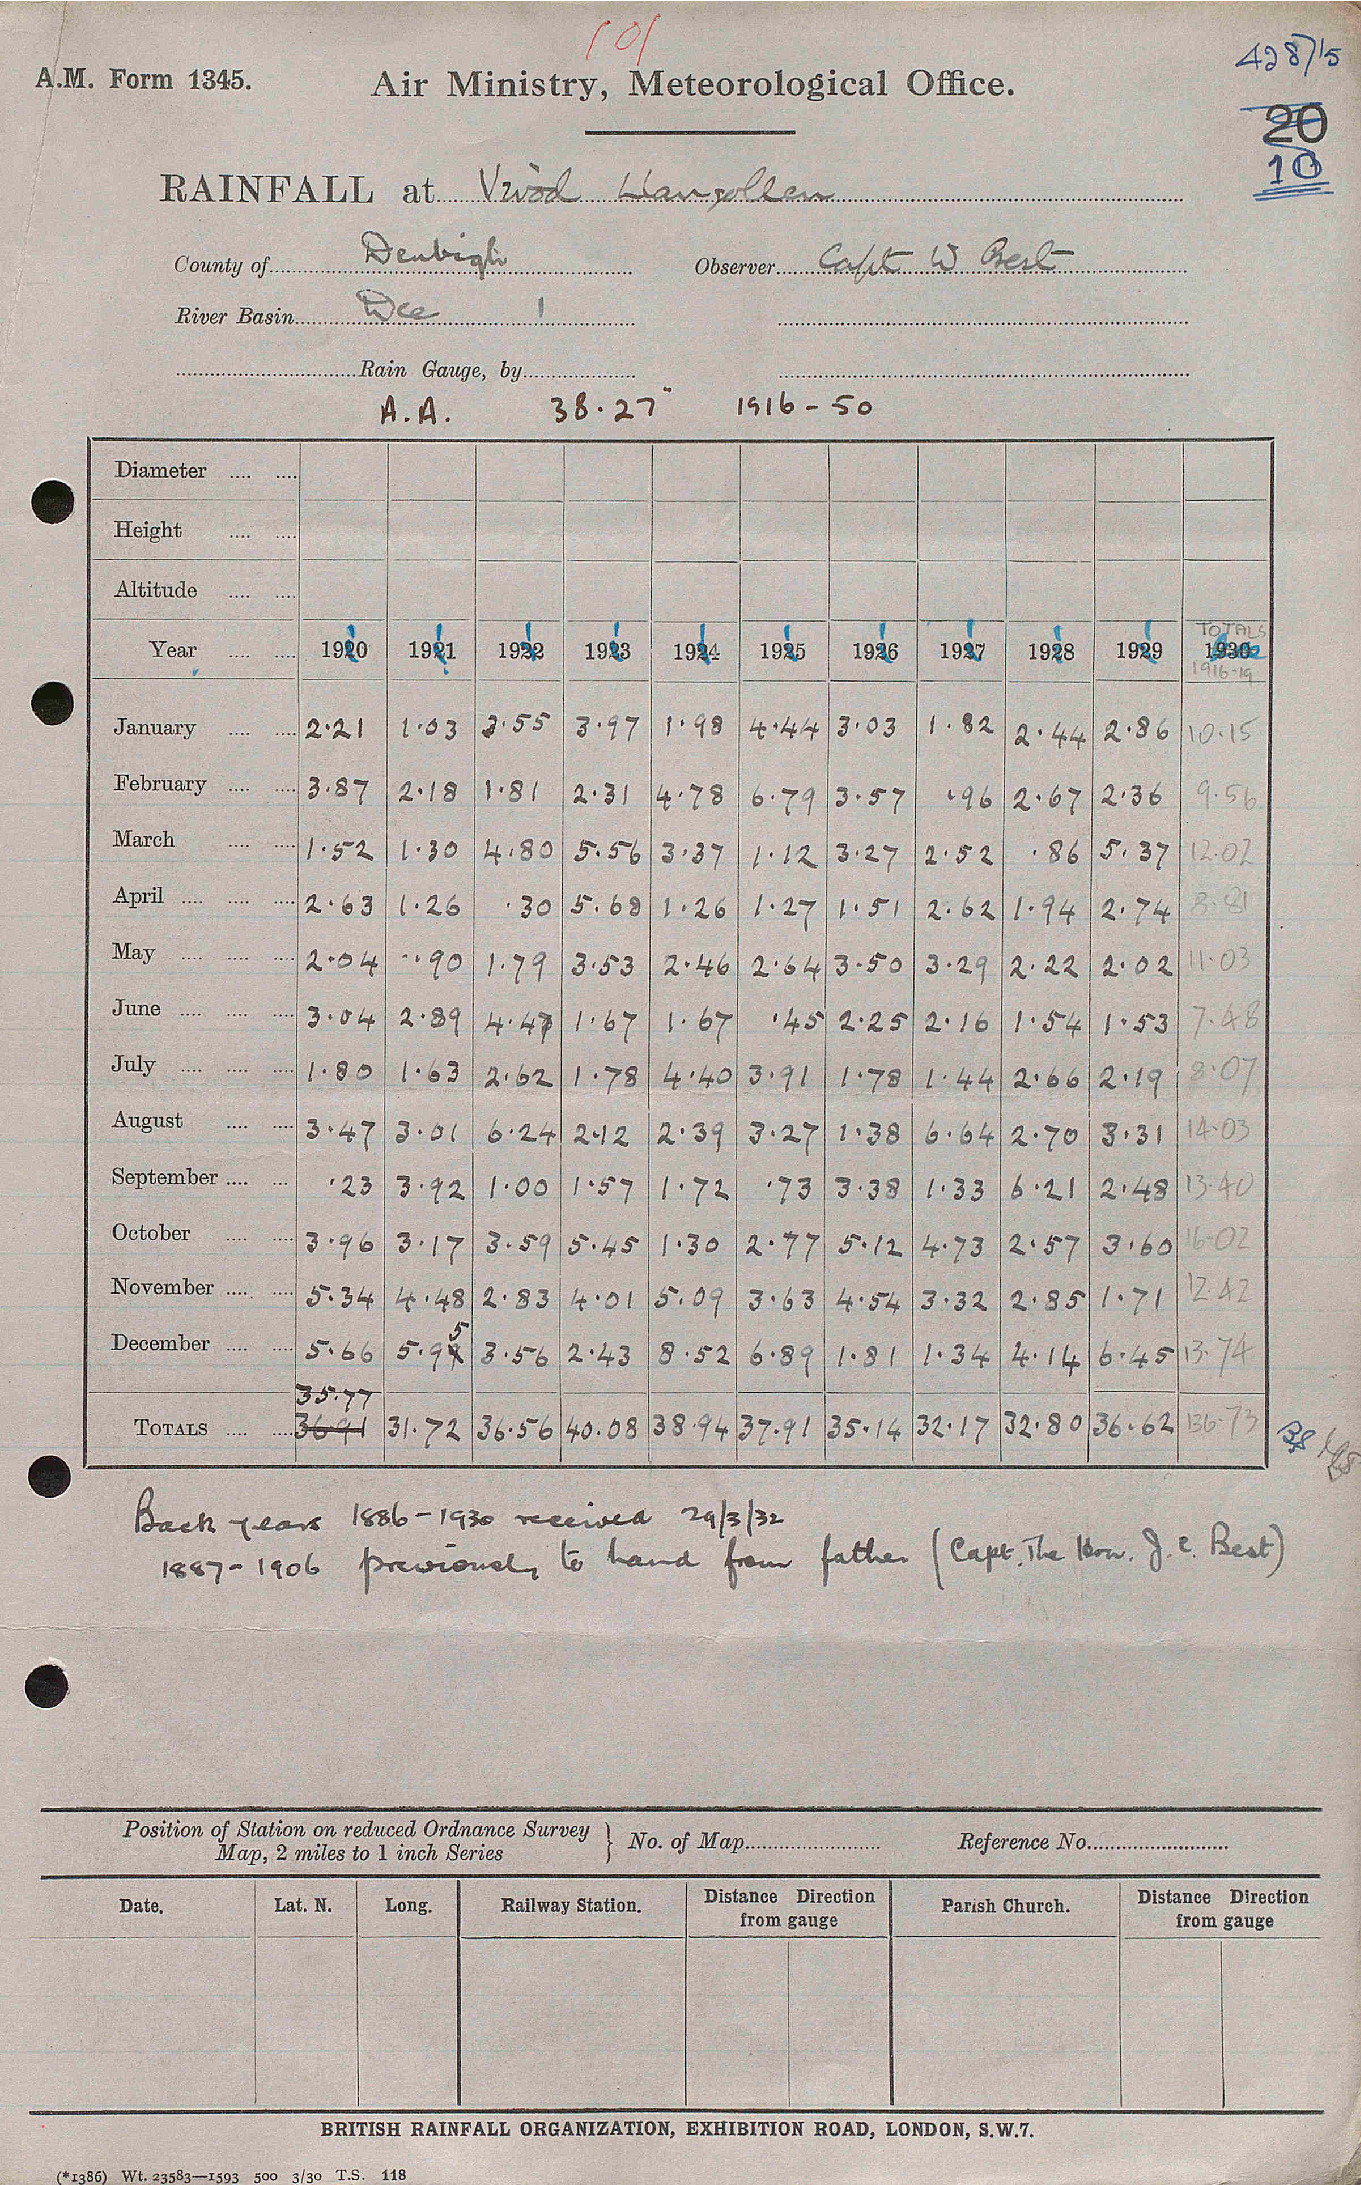 101
428/15
A.M. Form 1345.
Air Ministry, Meteorological Office.
20
10
RAINFALL at Vivod Llangollen
County of Denbigh Observer Capt W Best
River Basin Dee 1
Rain Gauge, by
A.A. 38.27" 1916-50
Diameter
Height
Altitude
TOTALS
Year 1910 1911 1912 1913 1914 1915 1916 1917 1918 1919 1930
1916-19
January 2.21 1.03 3.55 3.97 1.98 4.44 3.03 1.82 2.44 2.86 10.15
February 3.87 2.18 1.81 2.31 4.78 6.79 3.57 .96 2.67 2.36 9.56
March 1.52 1.30 4.80 5.56 3.37 1.12 3.27 2.52 .86 5.37 12.02
April 2.63 1.26 .30 5.68 1.26 1.27 1.51 2.62 1.94 2.74 8.81
May 2.04 .90 1.79 3.53 2.46 2.64 3.50 3.29 2.22 2.02 11.03
June 3.04 2.89 4.47 1.67 1.67 .45 2.25 2.16 1.54 1.53 7.48
July 1.80 1.63 2.62 1.78 4.40 3.91 1.78 1.44 2.66 2.19 8.07
August 3.47 3.01 6.24 2.12 2.39 3.27 1.38 6.64 2.70 3.31 14.03
September .23 3.92 1.00 1.57 1.72 .73 3.38 1.33 6.21 2.48 13.40
October 3.96 3.17 3.59 5.45 1.30 2.77 5.12 4.73 2.57 3.60 16.02
November 5.34 4.48 2.83 4.01 5.09 3.63 4.54 3.32 2.85 1.71 12.42
December 5.66 5.95 3.56 2.43 8.52 6.89 1.81 1.34 4.14 6.45 13.74
35.77
TOTALS 36.91 31.72 36.56 40.08 38.94 37.91 35.14 32.17 32.80 36.62 136.73
Back years 1886-1930 received 29/3/32
1887-1906 previously to hand from father (Capt. The Hon. J. C. Best)
Position of Station on reduced Ordnance Survey
Map, 2 miles to 1 inch Series } No. of Map Reference No.
Date. Lat. N. Long. Railway Station. Distance Direction from gauge Parish Church. Distance Direction from gauge
BRITISH RAINFALL ORGANIZATION, EXHIBITION ROAD, LONDON, S.W.7.
(*1386) Wt. 23583—1593 500 3/30 T.S. 118